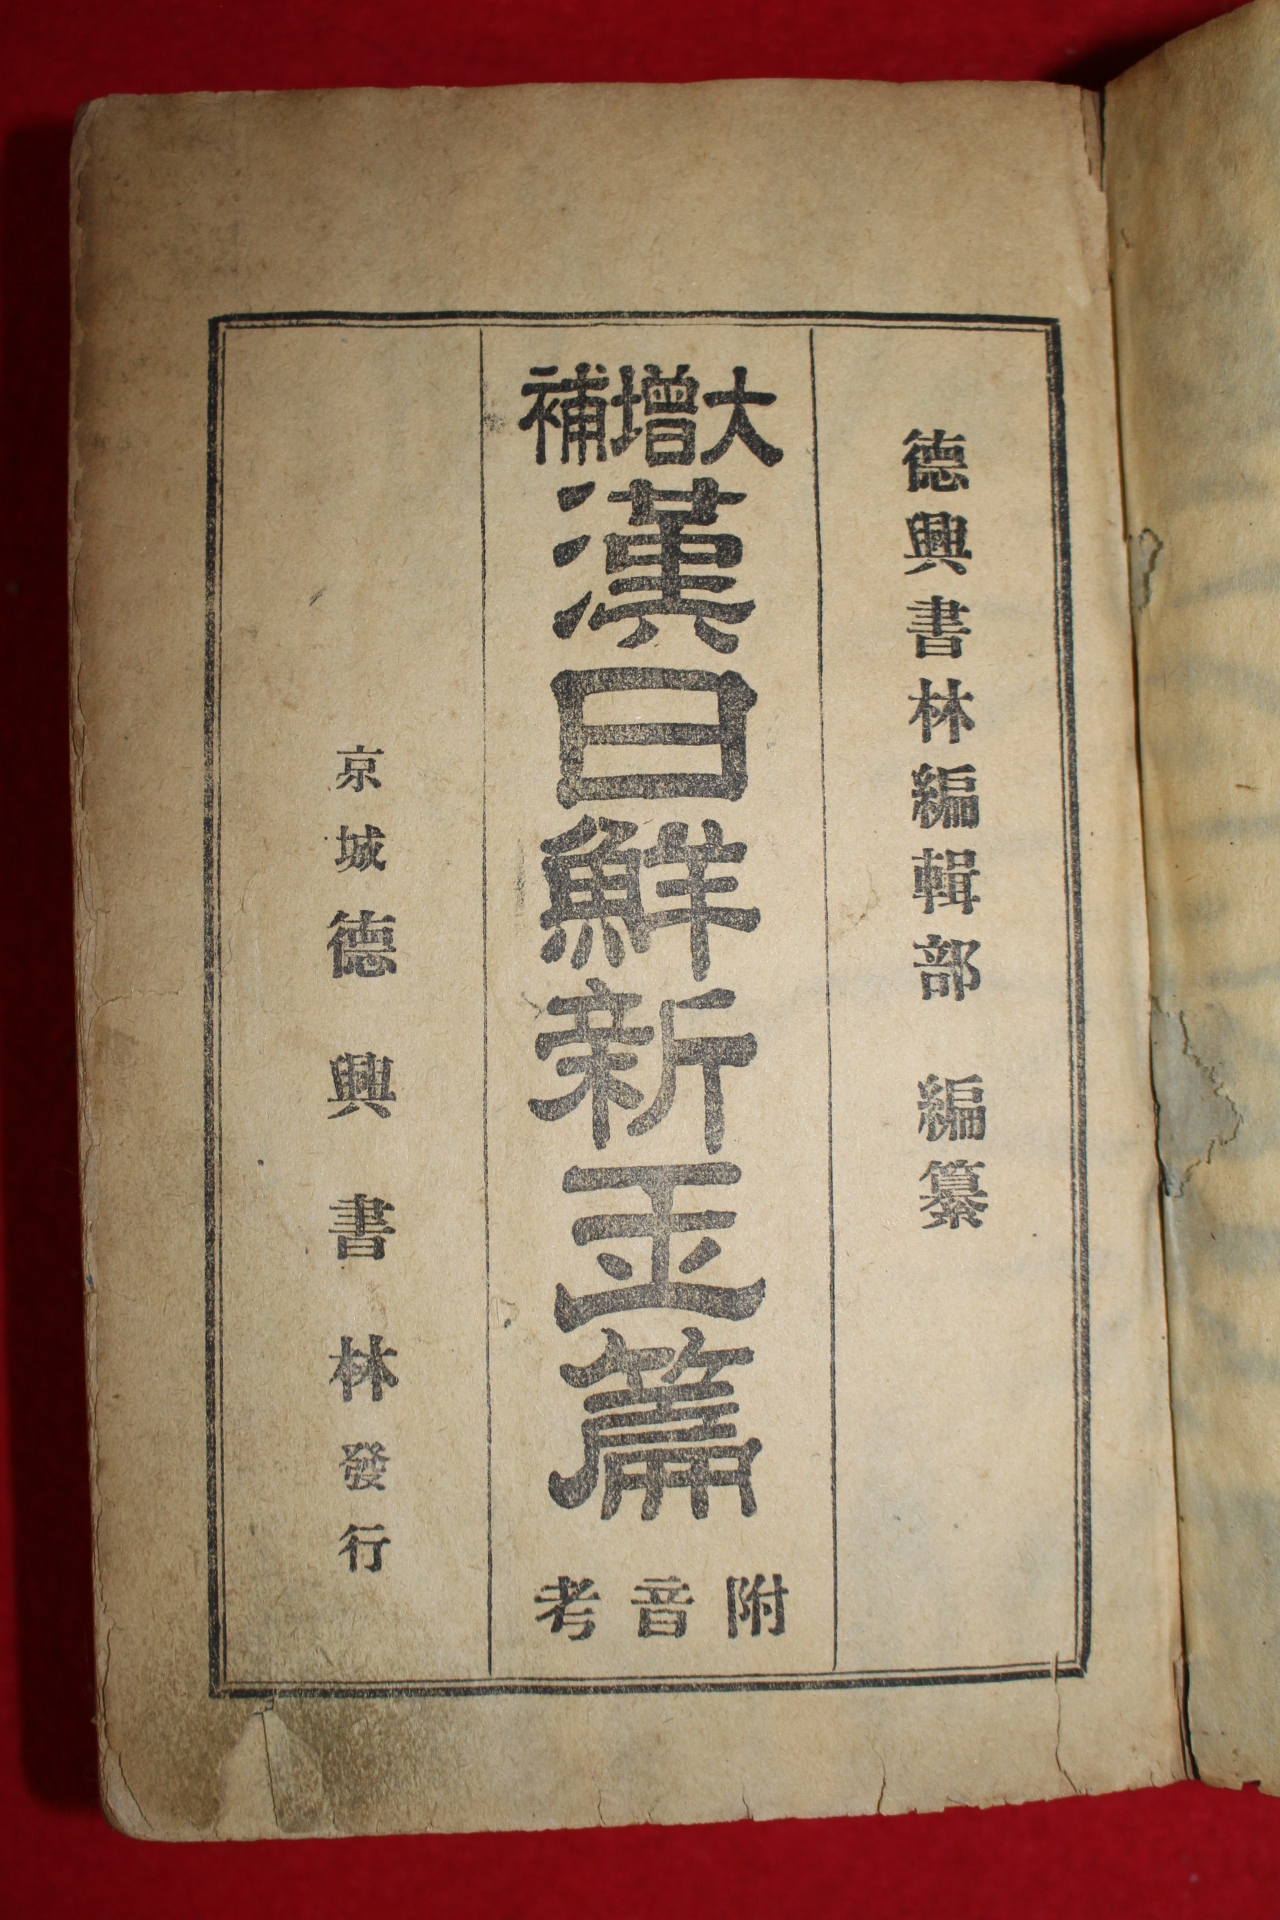 德興書林編輯部 編纂
大增補
漢日鮮新玉篇
附音考
京城德興書林發行